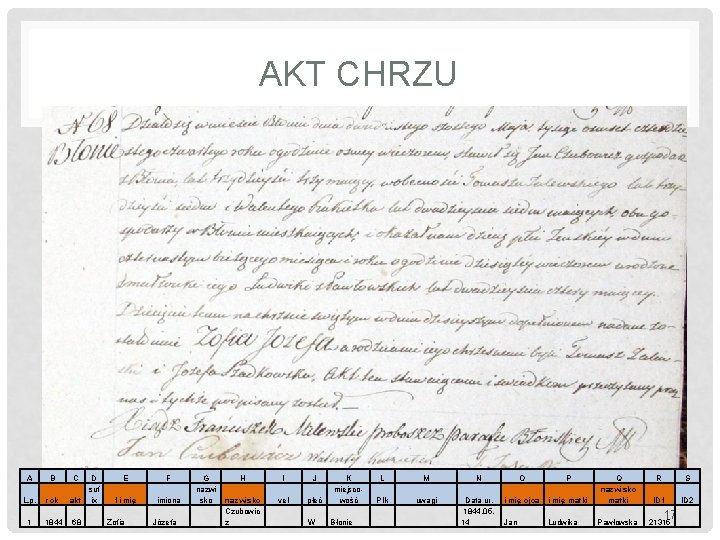 AKT CHRZU
N 68.
Błonie
Działo się w mieście Błoniu dnia dwudziestego szóstego Maja tysiąc ośmset czterdzie-
stego czwartego roku o godzinie ósmey wieczorem, stawił się Jan Czubowicz gospodarz
z Błonia, lat trzydzieści trzy maiący, w obecności Tomasza Zalewskiego lat trzy-
dzieści siedm i Walentego Rakietka lat dwadzieścia siedm maiących, obu go-
spodarzy w Błoniu mieszkaiących, i okazał nam dziecię płci żeńskiey w dniu
czternastym bieżącego miesiąca i roku o godzinie dziesiątey wieczorem urodzone
z małżonki iego Ludwiki z Pawłowskich lat dwadzieścia cztery maiącey.
Dziecięciu temu na chrzcie świętym w dniu dzisieyszym dopełnionym nadane zo-
stały imie Zofia Jozefa a rodzicami iego chrzestnemi byli Tomasz Zalew-
ski i Jozefa Sadkowska. Akt ten stawaiącemu i świadkom przeczytany przez
nas i tychże podpisany został.
Xiądz Franciszek Malewski proboszcz Parafii Błońskiey
Jan Czubowicz Walenty
A B C D E F G H I J K L M N O P Q R S
Lp. rok akt suf ix 1 imię imiona nazwi sko nazwisko vel płeć miejsco- wość Plk uwagi Data ur. imię ojca imię matki nazwisko matki ID1 ID2
1 1844 68 Zofia Józefa Czubowic z W Błonie 1844.05. 14 Jan Ludwika Pawłowska 21315
17